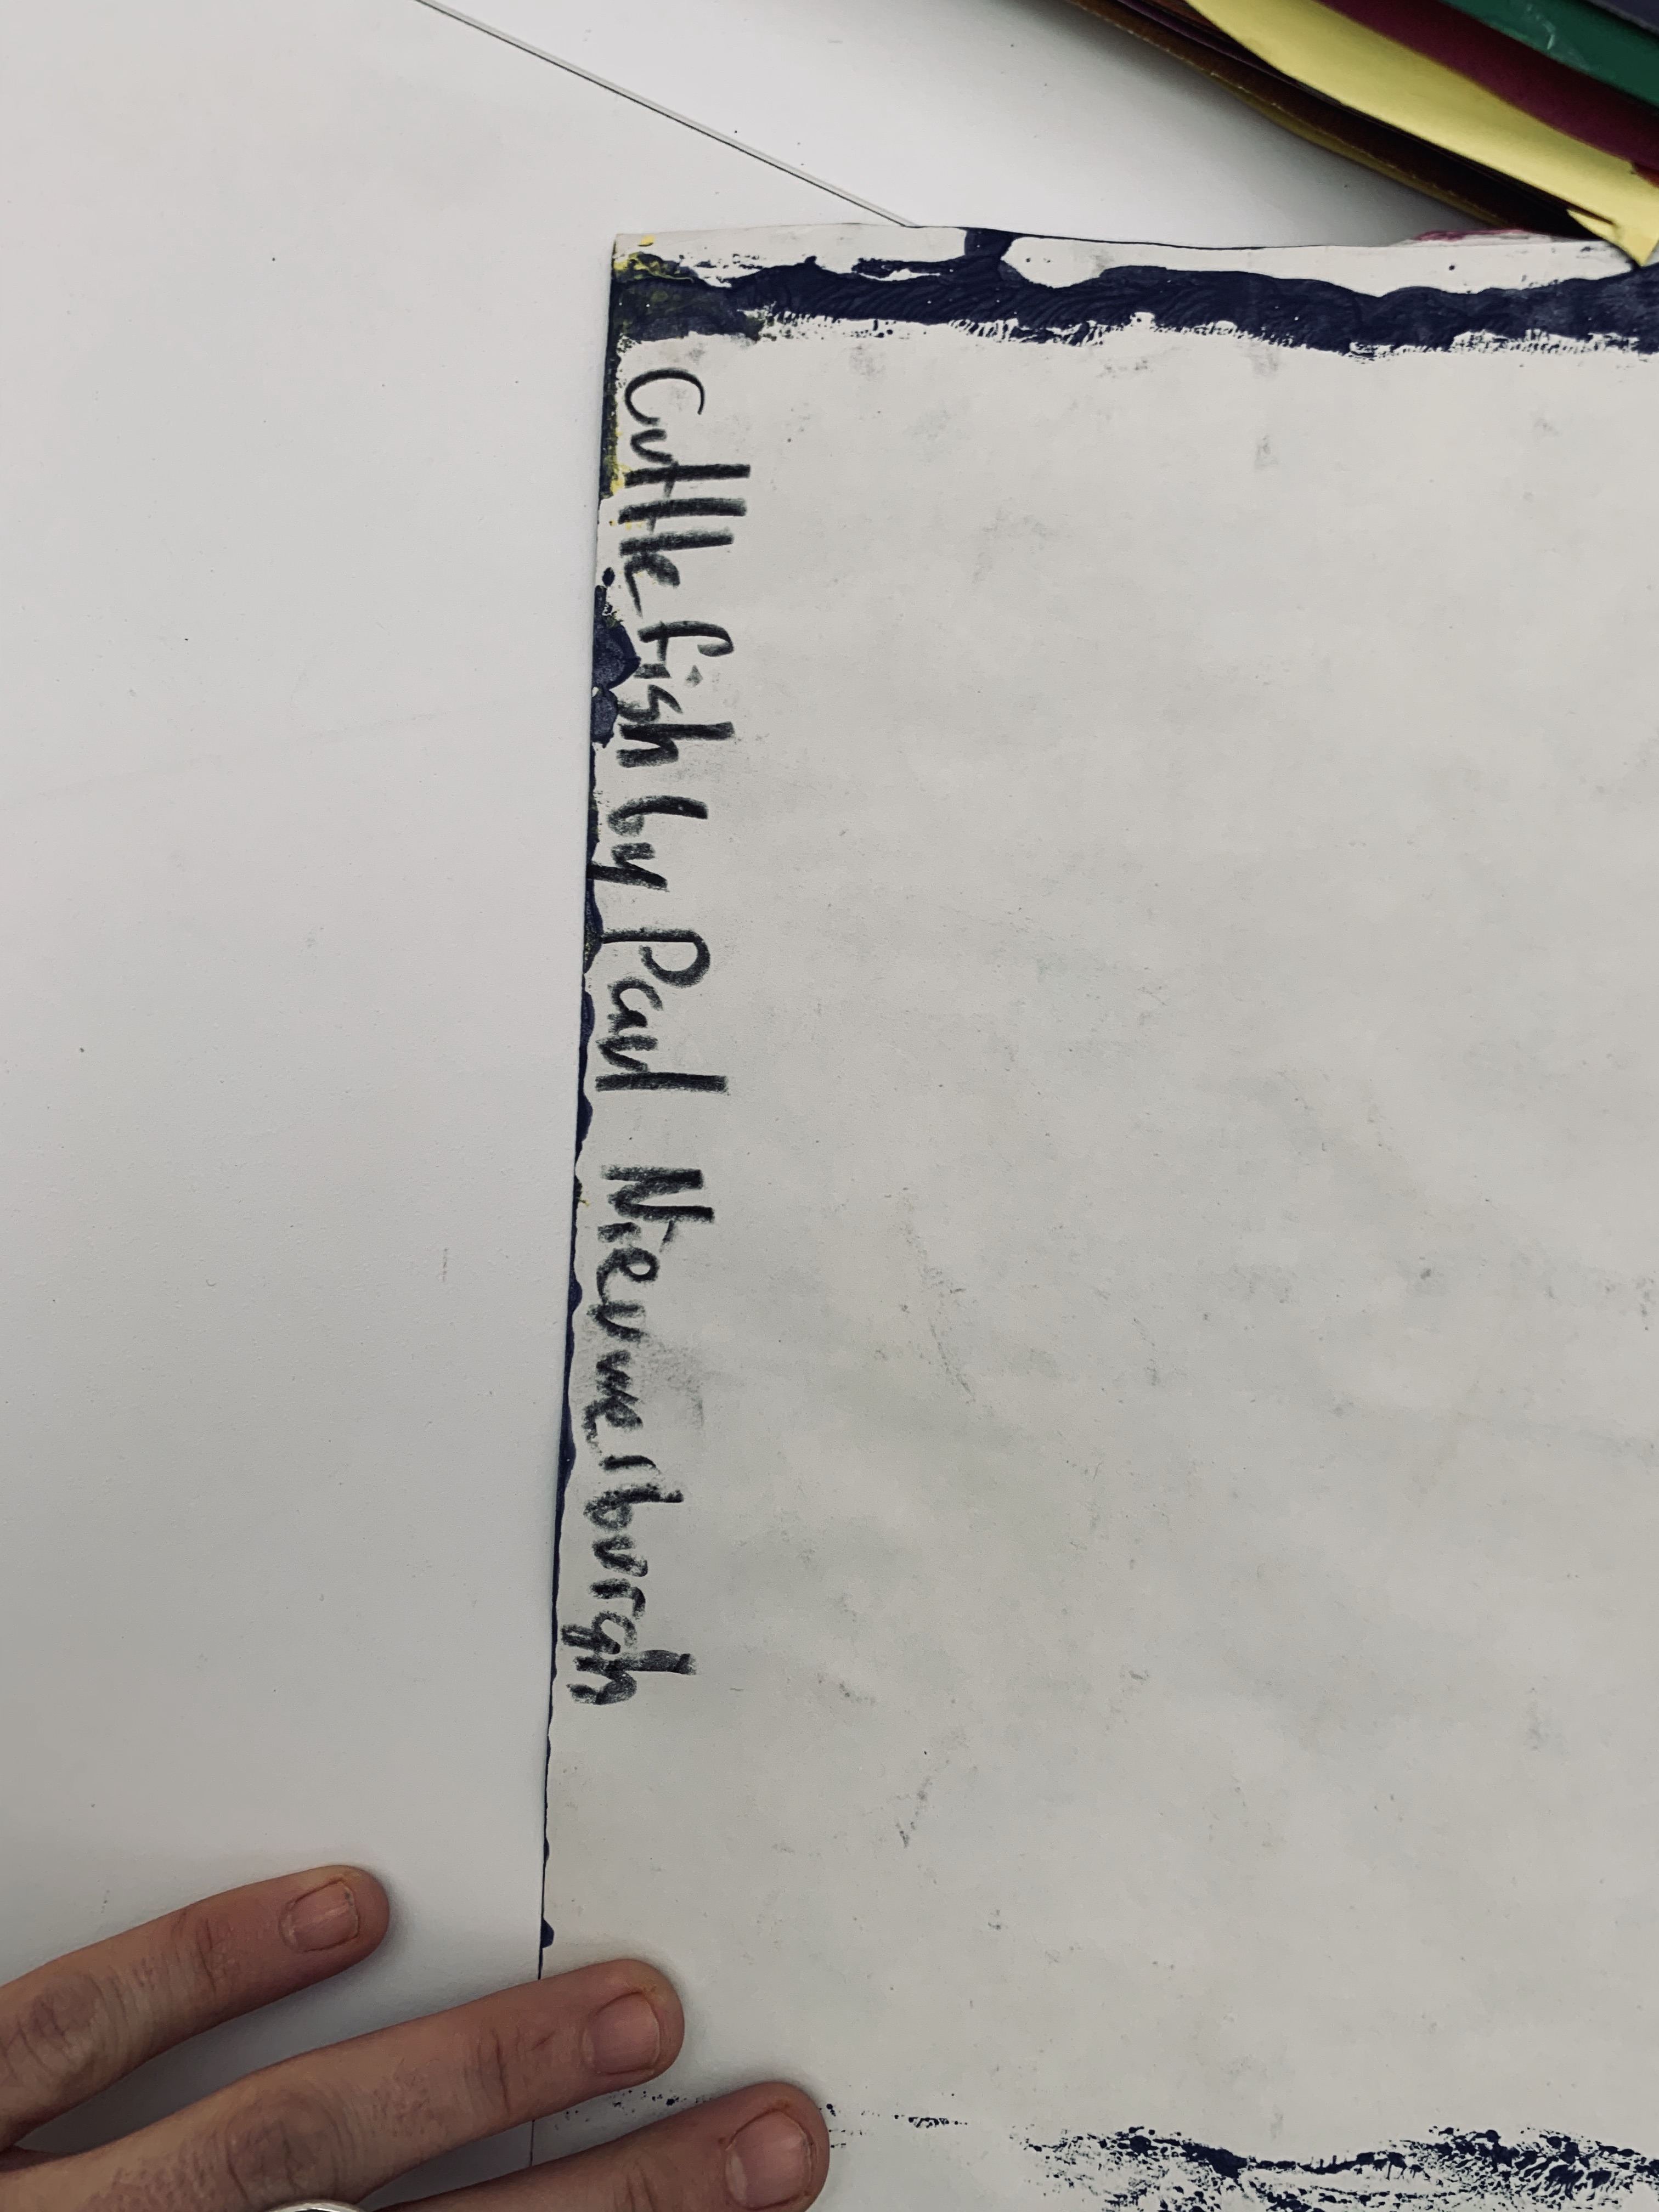 Cuttlefish by Paul Nieuwelburgh